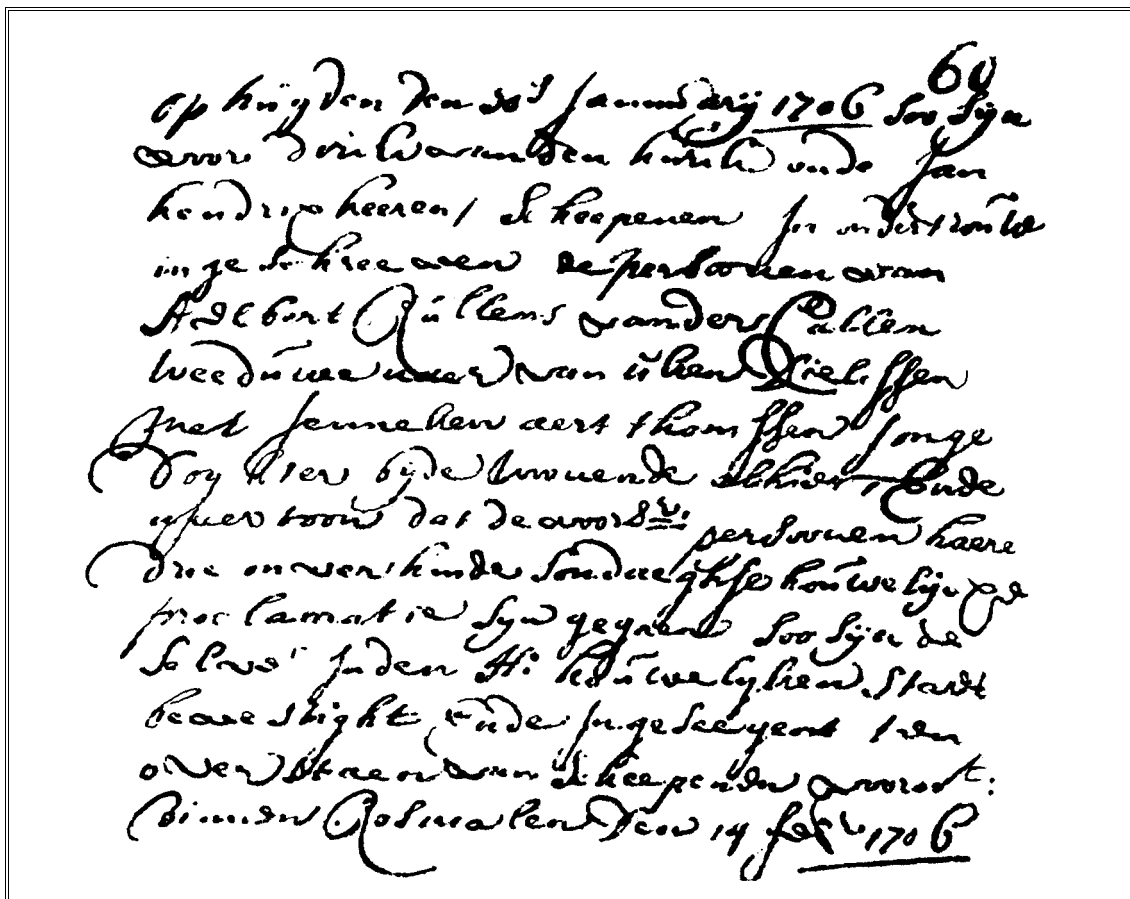 60
op huyden den 30s Januarij 1706 soo sijn
voor dirck van den hurck ende Jan
hendrix heeren / scheepenen In ondertrouwe
in geschreeven de persoonen van
Adlbert Rullens vanders Callen
weeduwenaer van ulken Dielissen
met Jenneken aert thomssen Jonge
doghter byde woonende alhier, Ende
vertoon dat de voors. persoonen haere
drie onverhinde sondaeghse houwelijxse
proclamatie syn gegaen soo sijn de
selve Inden H: houwelyken staedt
beveestight Ende Ingeseegent ten
overstaen van scheepenen voorst:
binnen Rosmalen den 14 febr 1706